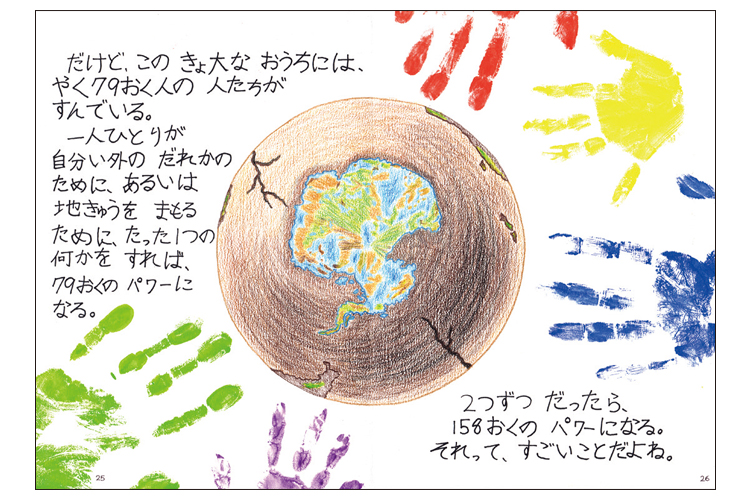 だけど、この きょ大な おうちには、
やく79おく人の 人たちが
すんでいる。
一人ひとりが
自分い外の だれかの
ために、あるいは
地きゅうを まもる
ために、たった1つの
何かを すれば、
79おくの パワーに
なる。
2つずつ だったら、
158おくの パワーになる。
それって、すごいことだよね。
25
26